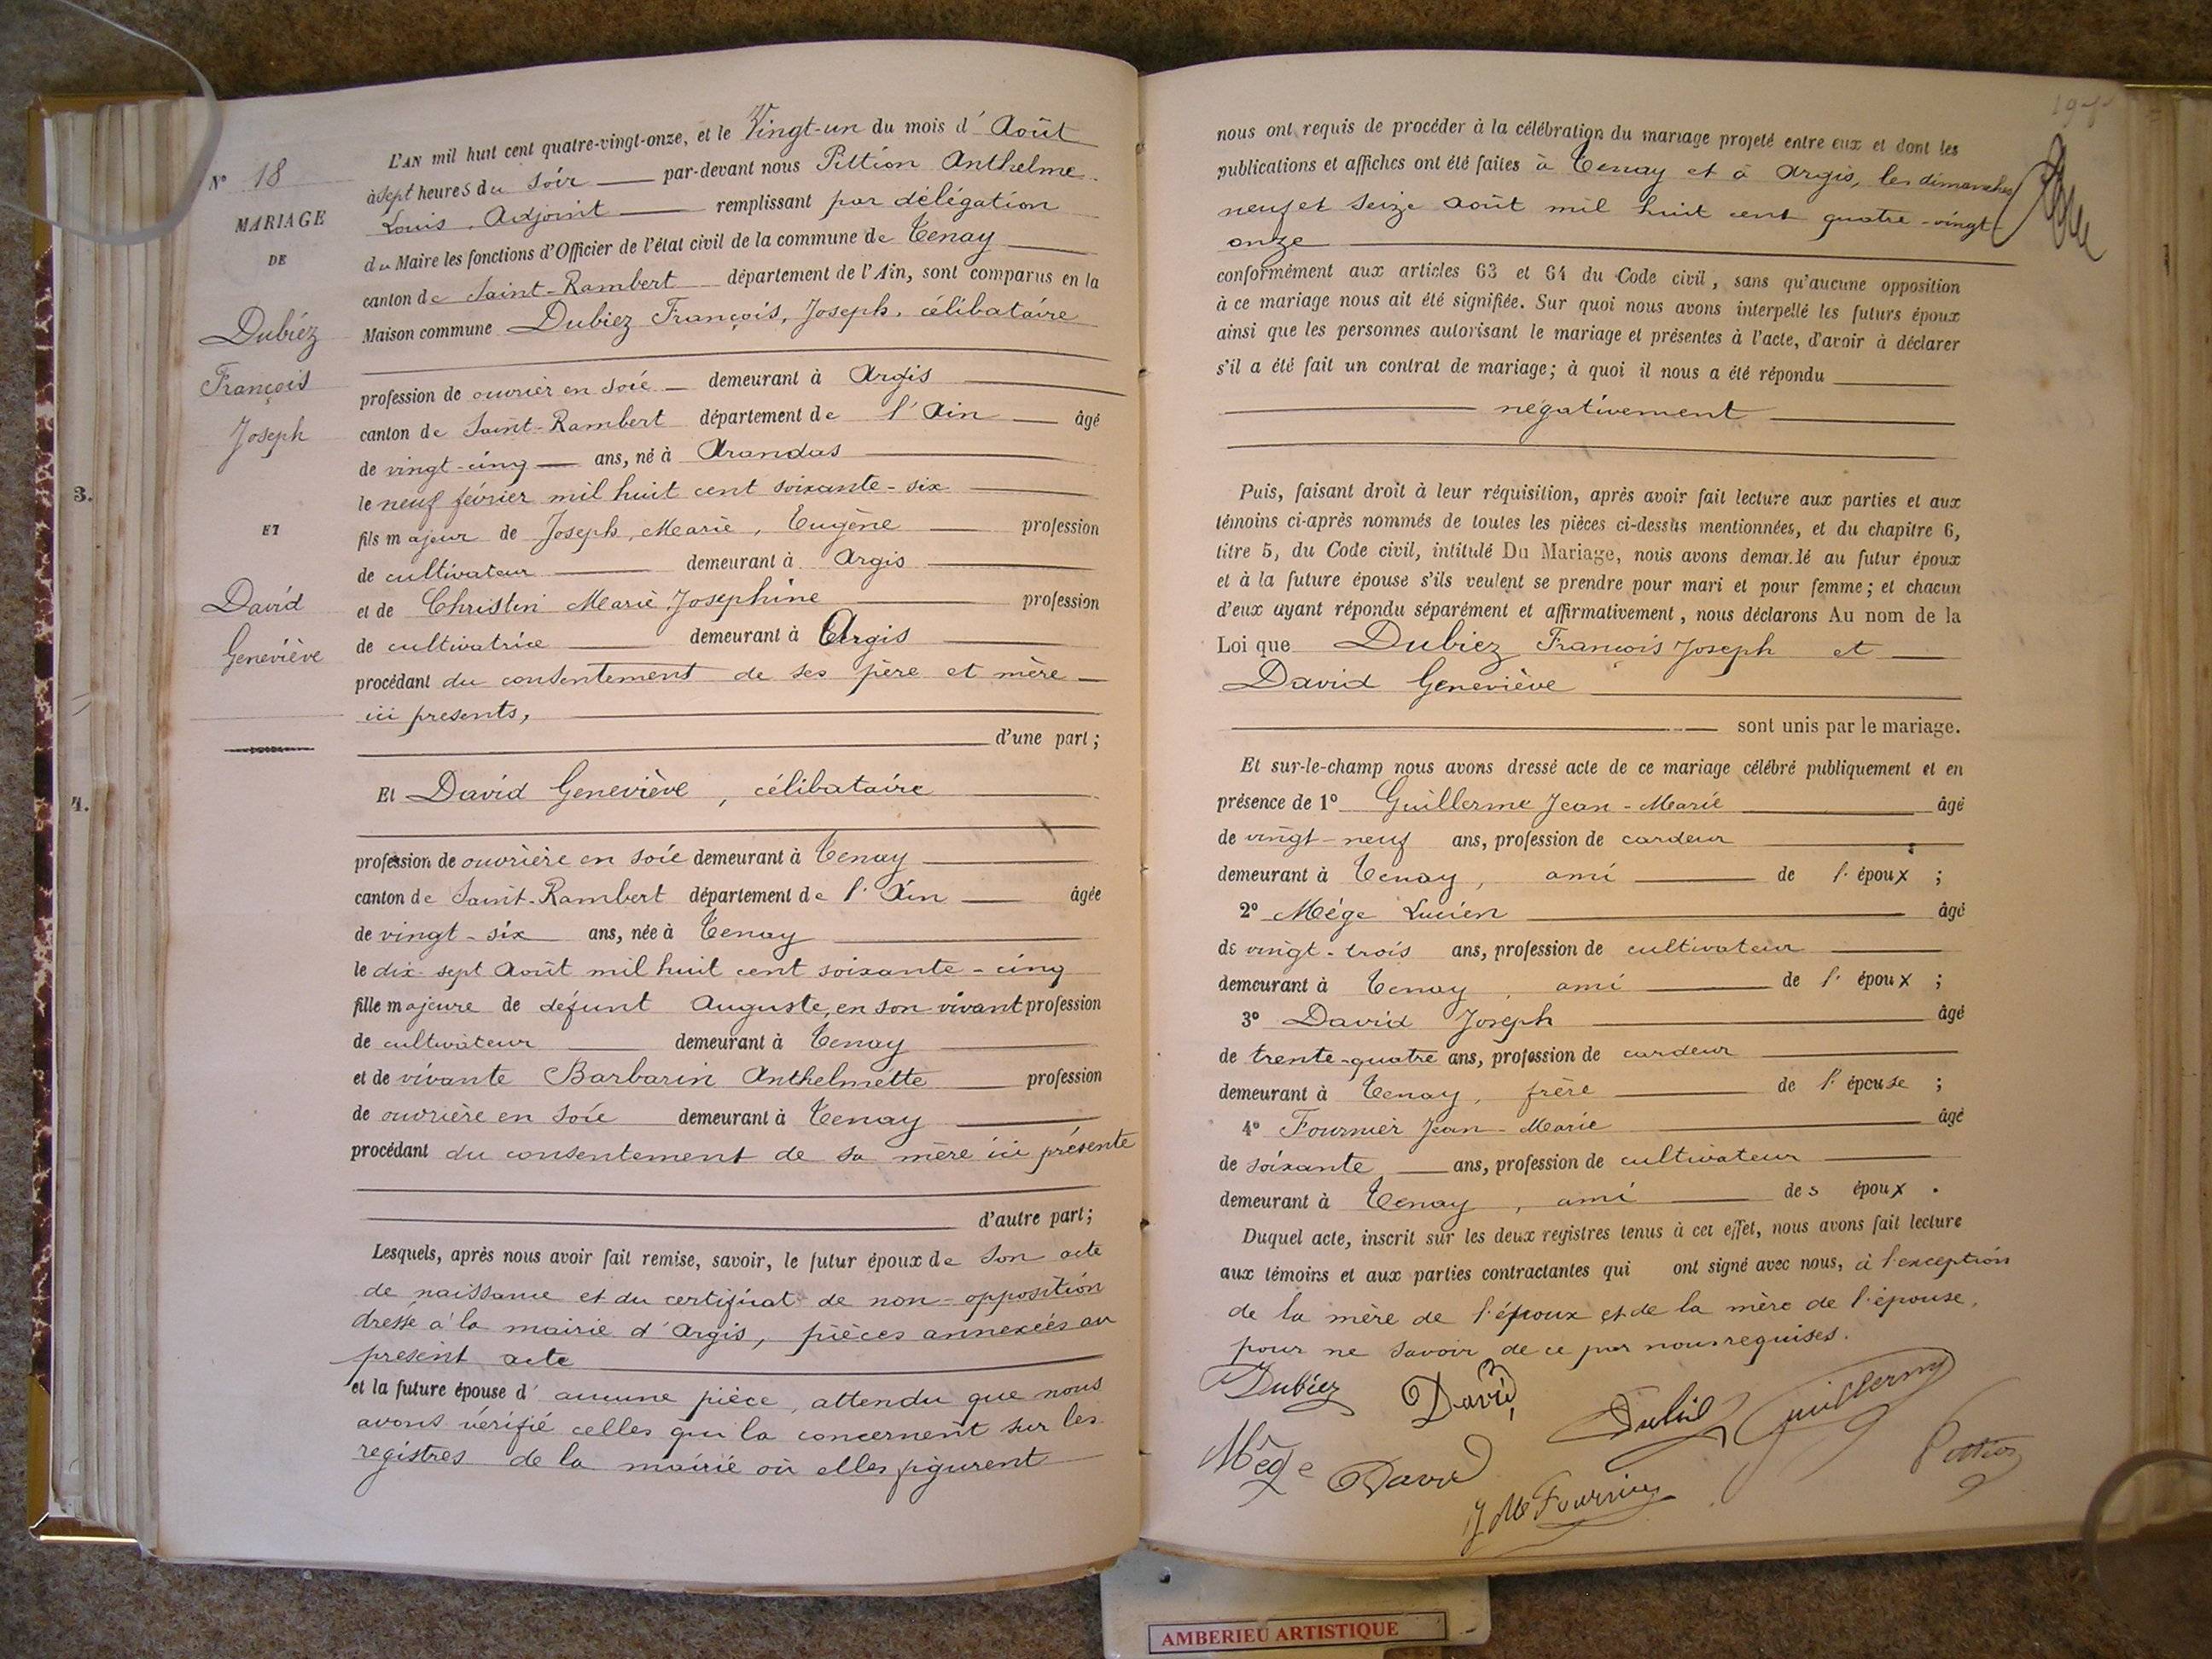 N° 18
MARIAGE
DE
Dubiez
François
Joseph
ET
David
Geneviève
3.
4.
L'AN mil huit cent quatre-vingt-onze, et le Vingt-un du mois d'Août
à sept heures du soir par-devant nous Pittion Anthelme
Louis, Adjoint remplissant par délégation
du Maire les fonctions d'Officier de l'état civil de la commune de Tenay
canton de Saint-Rambert département de l'Ain, sont comparus en la
Maison commune Dubiez François, Joseph, célibataire
profession de ouvrier en soie demeurant à Argis
canton de Saint-Rambert département de l'Ain âgé
de vingt-cinq ans, né à Arandas
le neuf février mil huit cent soixante-six
fils majeur de Joseph, Marie, Eugène profession
de cultivateur demeurant à Argis
et de Christin Marie Josephine profession
de cultivatrice demeurant à Argis
procédant du consentement de ses père et mère
ici presents,
d'une part;
Et David Geneviève, célibataire
profession de ouvrière en soie demeurant à Tenay
canton de Saint-Rambert département de l'Ain âgée
de vingt-six ans, née à Tenay
le dix-sept Août mil huit cent soixante-cinq
fille majeure de défunt Auguste, en son vivant profession
de cultivateur demeurant à Tenay
et de vivante Barbarin Anthelmette profession
de ouvrière en soie demeurant à Tenay
procédant du consentement de sa mère ici présente
d'autre part;
Lesquels, après nous avoir fait remise, savoir, le futur époux de son acte
de naissance et du certificat de non-opposition
dressé à la mairie d'Argis, pièces annexées au
présent acte
et la future épouse d'aucune pièce, attendu que nous
avons vérifié celles qui la concernent sur les
registres de la mairie où elles figurent
nous ont requis de procéder à la célébration du mariage projeté entre eux et dont les
publications et affiches ont été faites à Tenay et à Argis, les dimanches
neuf et seize août mil huit cent quatre-vingt-
onze
conformément aux articles 63 et 64 du Code civil, sans qu'aucune opposition
à ce mariage nous ait été signifiée. Sur quoi nous avons interpellé les futurs époux
ainsi que les personnes autorisant le mariage et présentes à l'acte, d'avoir à déclarer
s'il a été fait un contrat de mariage; à quoi il nous a été répondu
négativement
Puis, faisant droit à leur réquisition, après avoir fait lecture aux parties et aux
témoins ci-après nommés de toutes les pièces ci-dessus mentionnées, et du chapitre 6,
titre 5, du Code civil, intitulé Du Mariage, nous avons demandé au futur époux
et à la future épouse s'ils veulent se prendre pour mari et pour femme; et chacun
d'eux ayant répondu séparément et affirmativement, nous déclarons Au nom de la
Loi que Dubiez François Joseph et
David Geneviève
sont unis par le mariage.
Et sur-le-champ nous avons dressé acte de ce mariage célébré publiquement et en
présence de 1° Guillerme Jean-Marie âgé
de vingt-neuf ans, profession de cardeur
demeurant à Tenay, ami de l'époux;
2° Mége Lucien âgé
de vingt-trois ans, profession de cultivateur
demeurant à Tenay, ami de l'époux;
3° David Joseph âgé
de trente-quatre ans, profession de cardeur
demeurant à Tenay, frère de l'épouse;
4° Fournier Jean-Marie âgé
de soixante ans, profession de cultivateur
demeurant à Tenay, ami des époux.
Duquel acte, inscrit sur les deux registres tenus à cet effet, nous avons fait lecture
aux témoins et aux parties contractantes qui ont signé avec nous, à l'exception
de la mère de l'époux et de la mère de l'épouse,
pour ne savoir de ce par nous requises.
Dubiez David Guillerme
Mége David J M Fournier Pittion
AMBERIEU ARTISTIQUE